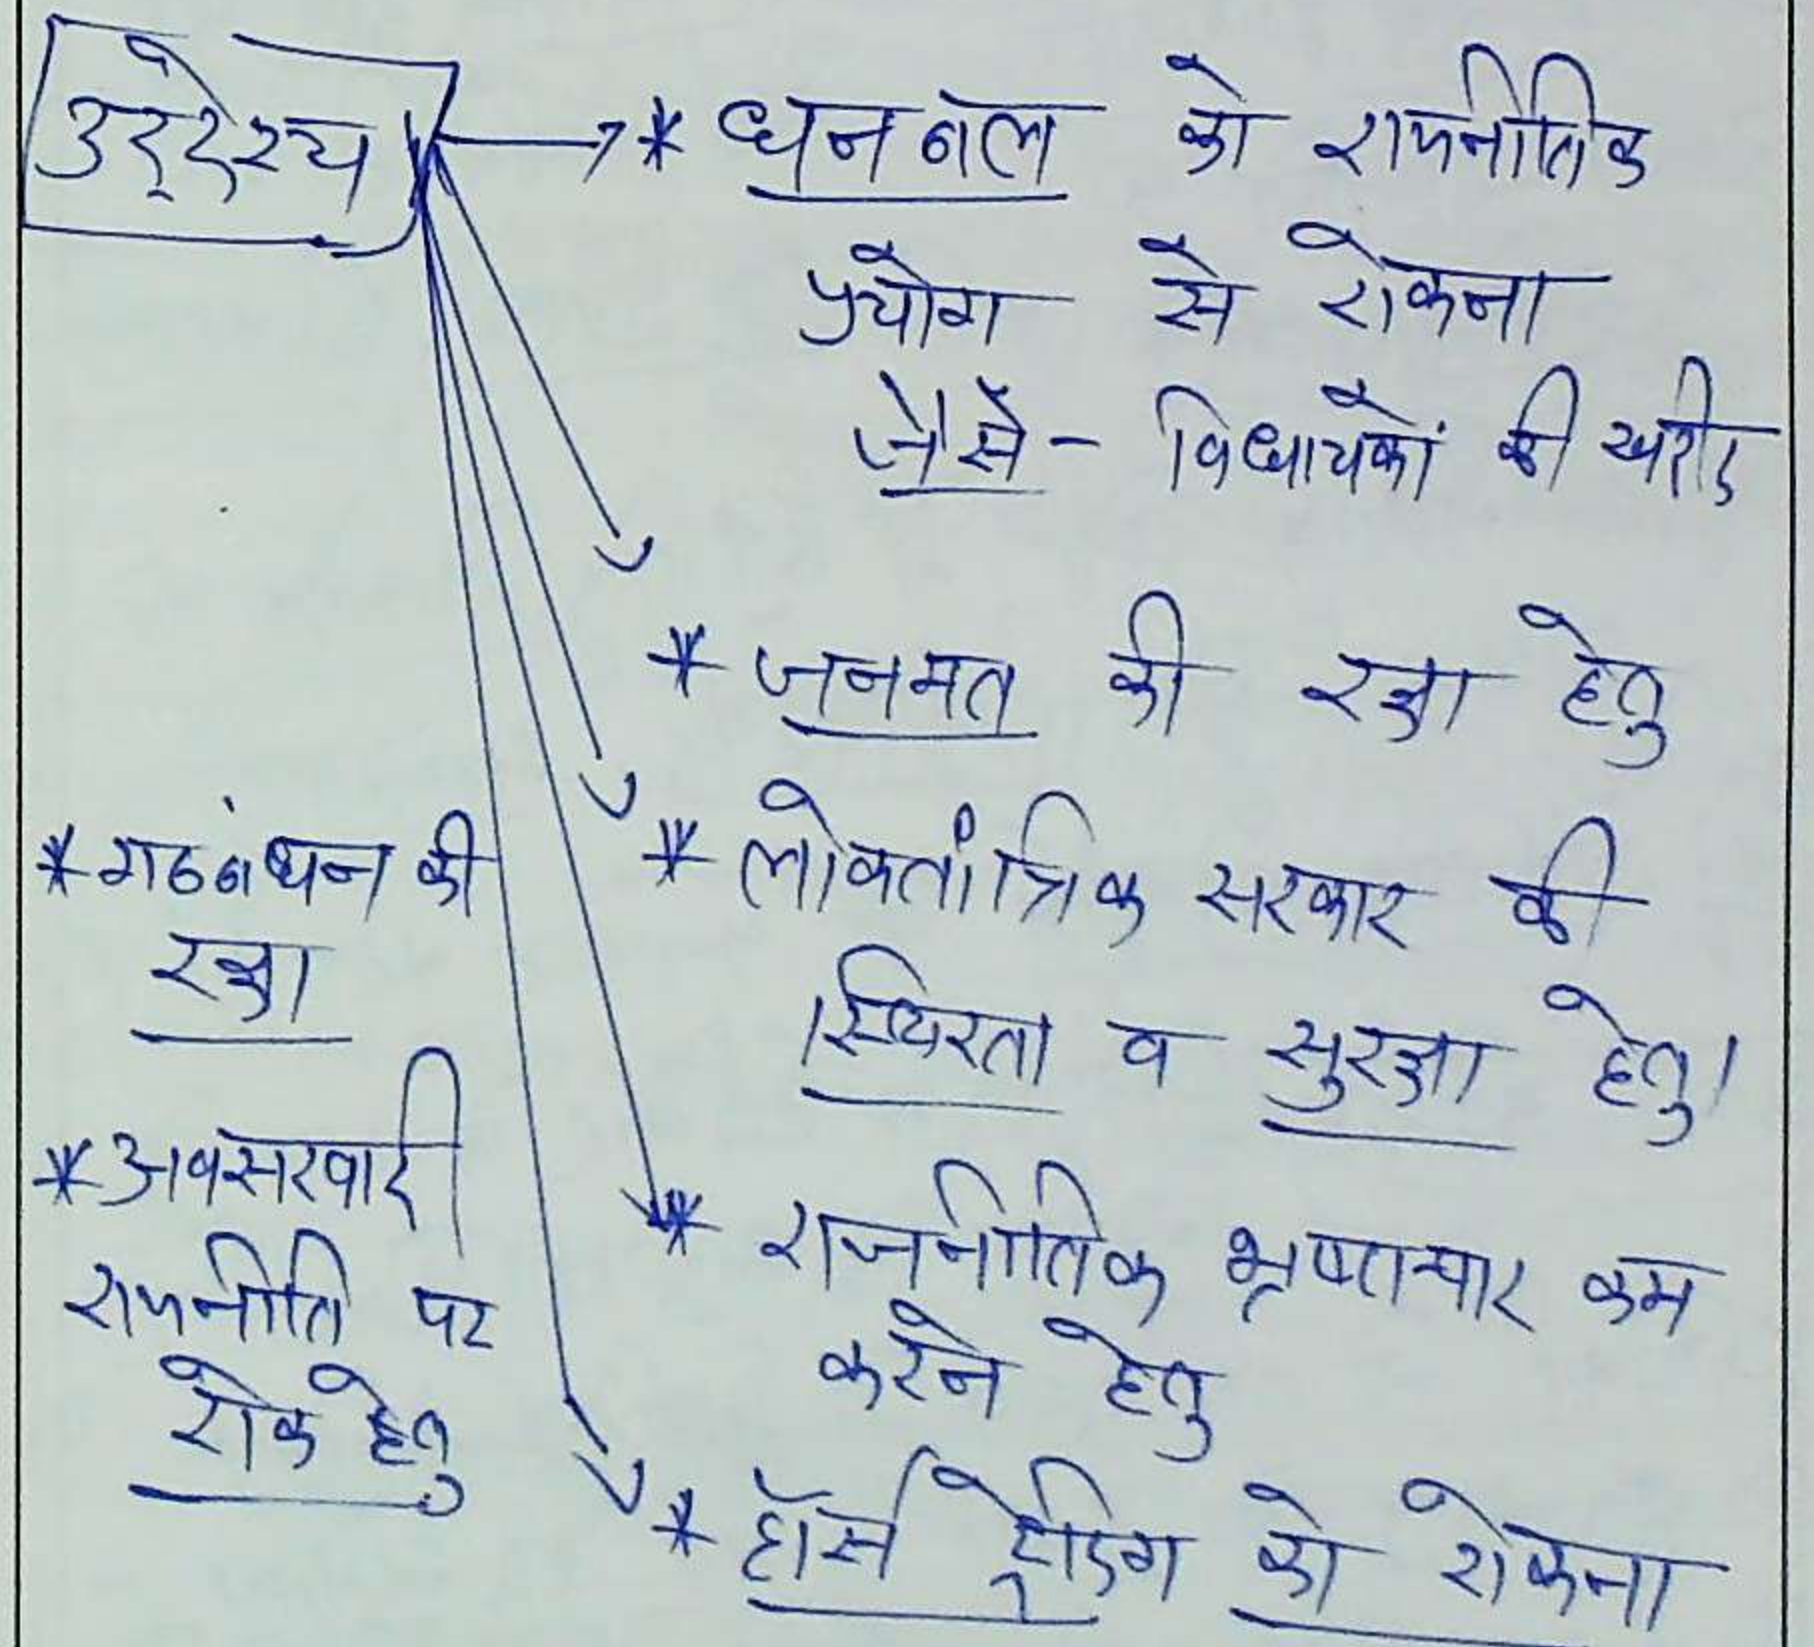 उद्देश्य
* धनबल को राजनीतिक
प्रयोग से रोकना
जैसे - विधायकों की खरीद
* जनमत की रक्षा हेतु
* लोकतांत्रिक सरकार की
स्थिरता व सुरक्षा हेतु।
* राजनीतिक भ्रष्टाचार कम
करने हेतु
* हॉर्स ट्रेडिंग को रोकना
* गठबंधन की
रक्षा
* अवसरवादी
राजनीति पर
रोक हेतु